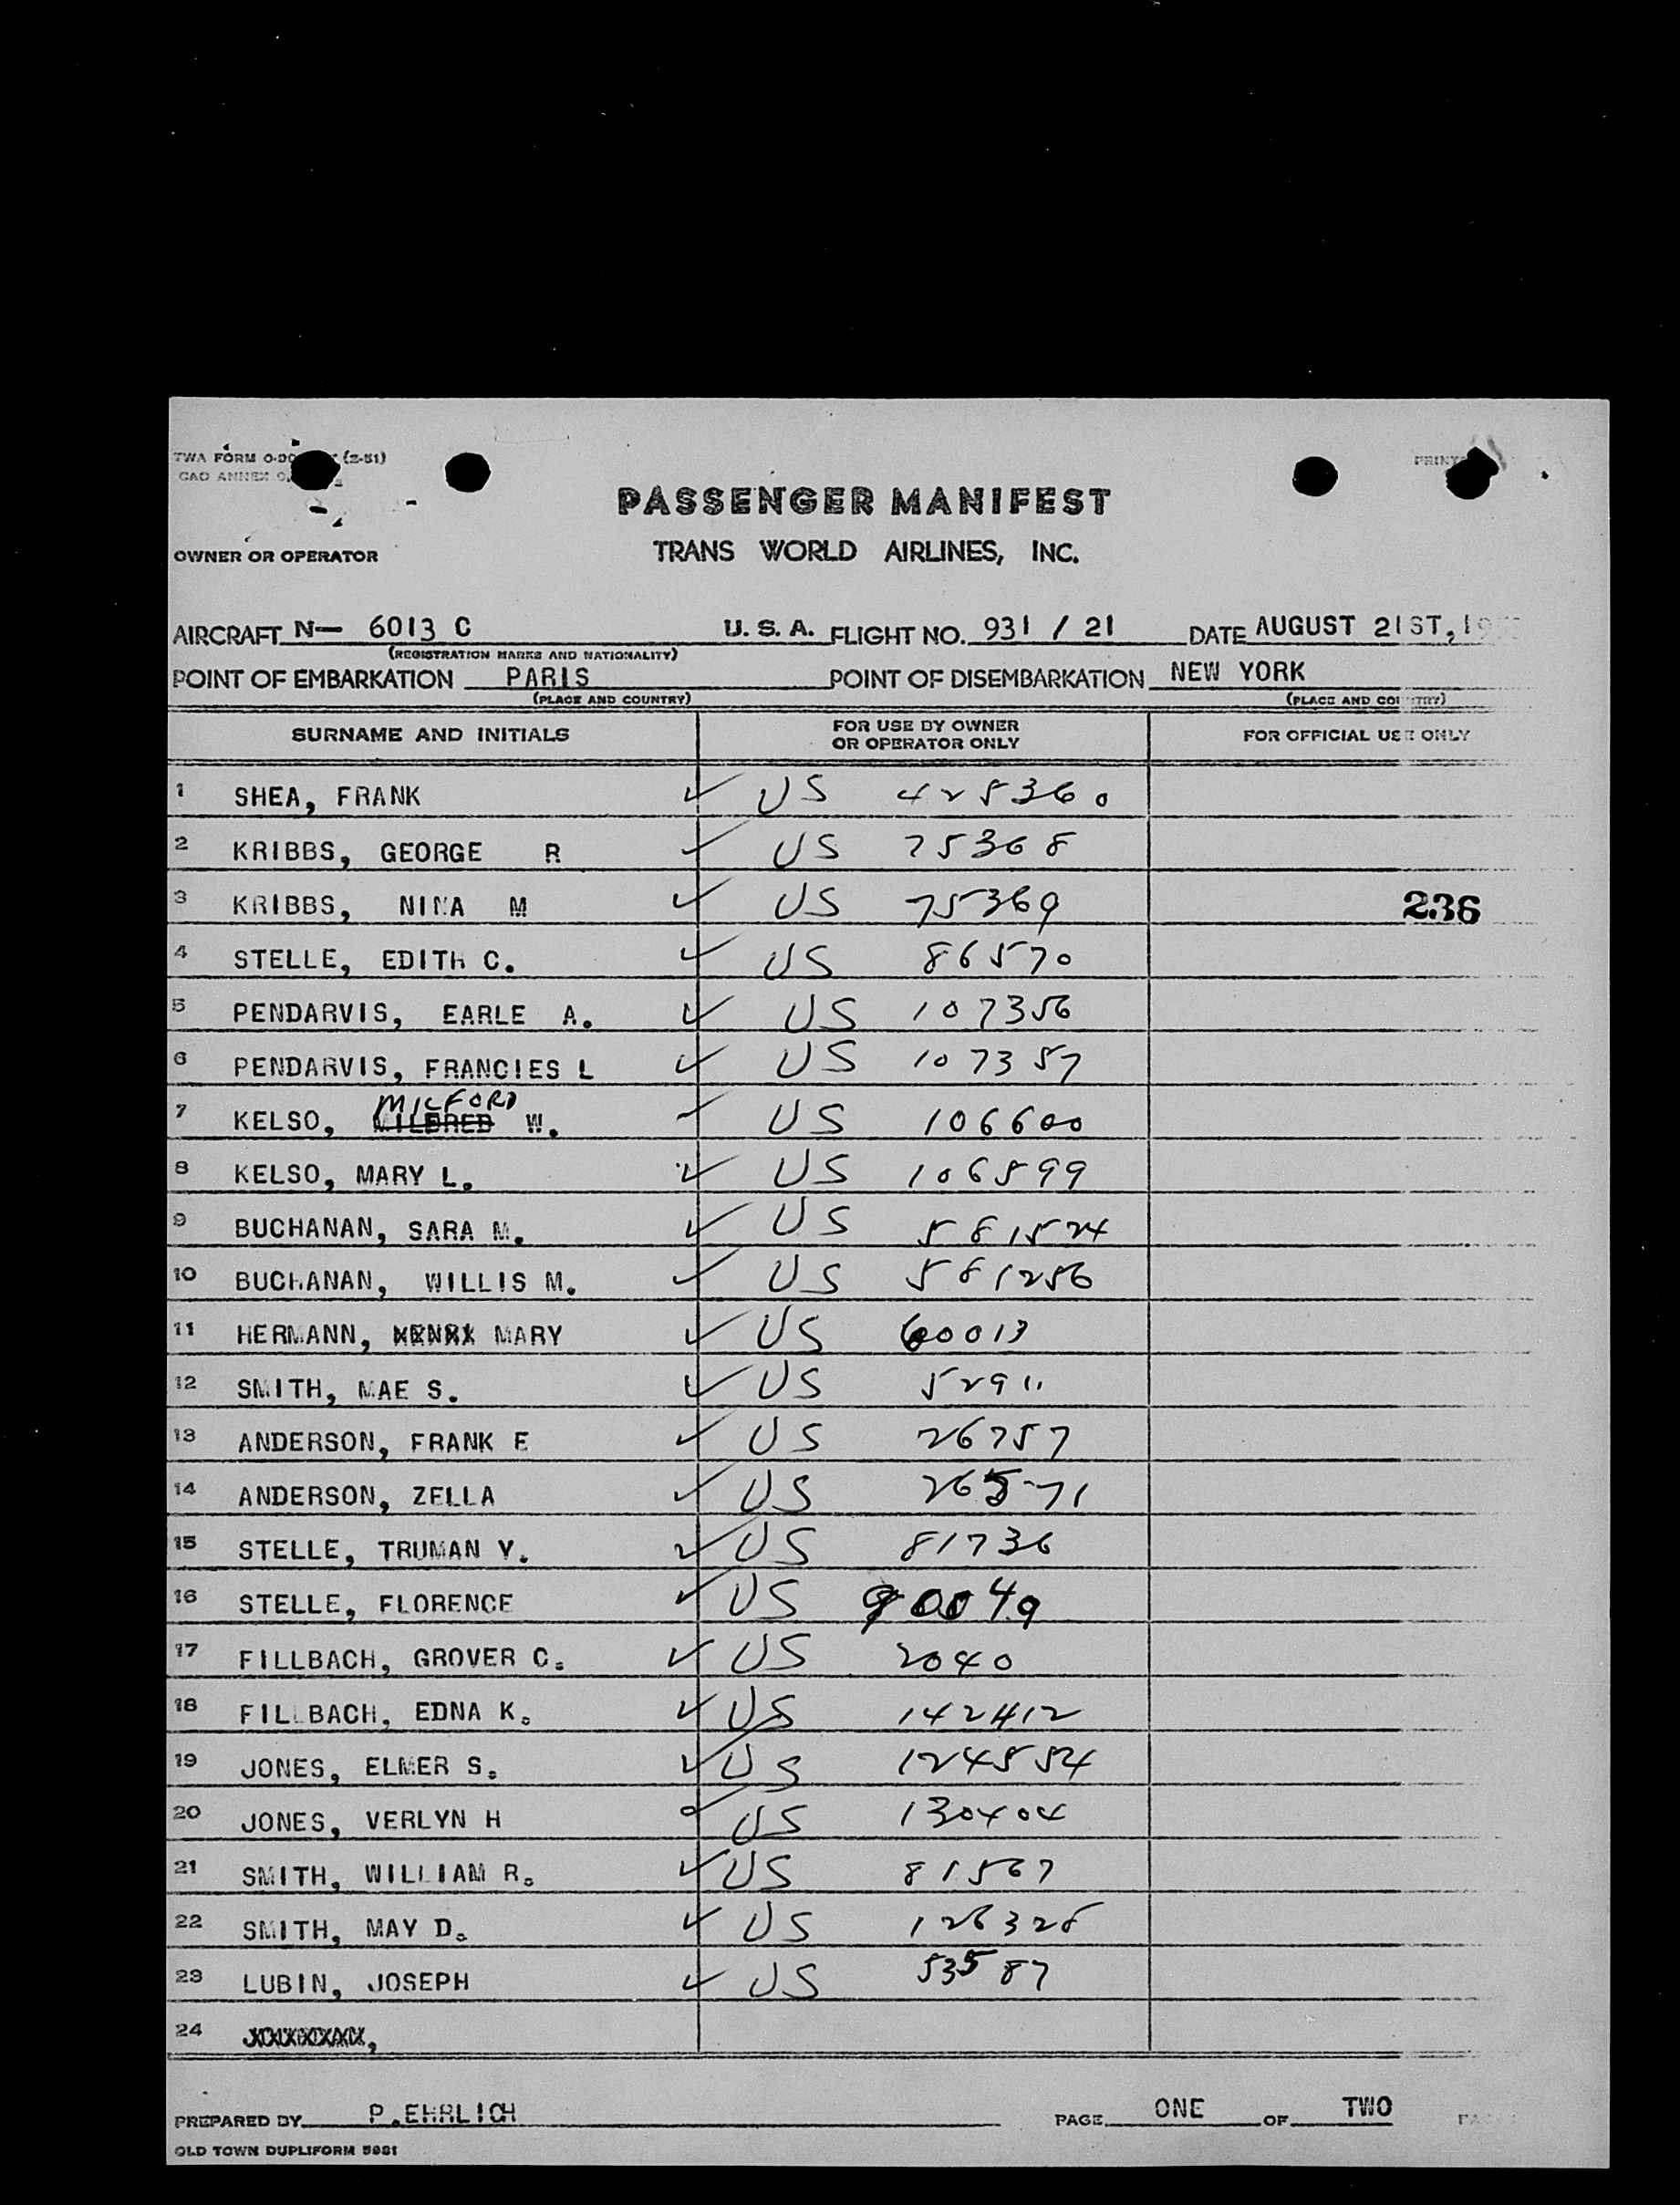 TWA FORM O-DO (2-51)
PASSENGER MANIFEST
OWNER OR OPERATOR TRANS WORLD AIRLINES, INC.
AIRCRAFT N— 6013 C U. S. A. FLIGHT NO. 931 / 21 DATE AUGUST 21ST, 19
(REGISTRATION MARKS AND NATIONALITY)
POINT OF EMBARKATION PARIS POINT OF DISEMBARKATION NEW YORK
(PLACE AND COUNTRY) (PLACE AND COUNTRY)
SURNAME AND INITIALS FOR USE BY OWNER OR OPERATOR ONLY FOR OFFICIAL USE ONLY
1 SHEA, FRANK ✓ US 428360
2 KRIBBS, GEORGE R ✓ US 75368
3 KRIBBS, NINA M ✓ US 75369 236
4 STELLE, EDITH C. ✓ US 86570
5 PENDARVIS, EARLE A. ✓ US 107356
6 PENDARVIS, FRANCIES L ✓ US 107357
7 KELSO, MILDRED MILFORD W. ✓ US 106600
8 KELSO, MARY L. ✓ US 106599
9 BUCHANAN, SARA M. ✓ US 581524
10 BUCHANAN, WILLIS M. ✓ US 581256
11 HERMANN, MARY ✓ US 60013
12 SMITH, MAE S. ✓ US 52911
13 ANDERSON, FRANK E ✓ US 26757
14 ANDERSON, ZELLA ✓ US 26571
15 STELLE, TRUMAN V. ✓ US 81736
16 STELLE, FLORENCE ✓ US 90049
17 FILLBACH, GROVER C. ✓ US 2040
18 FILLBACH, EDNA K. ✓ US 142412
19 JONES, ELMER S. ✓ US 124554
20 JONES, VERLYN H ✓ US 130404
21 SMITH, WILLIAM R. ✓ US 81567
22 SMITH, MAY D. ✓ US 126328
23 LUBIN, JOSEPH ✓ US 53587
24
PREPARED BY P.EHRLICH PAGE ONE OF TWO
OLD TOWN DUPLIFORM 5981